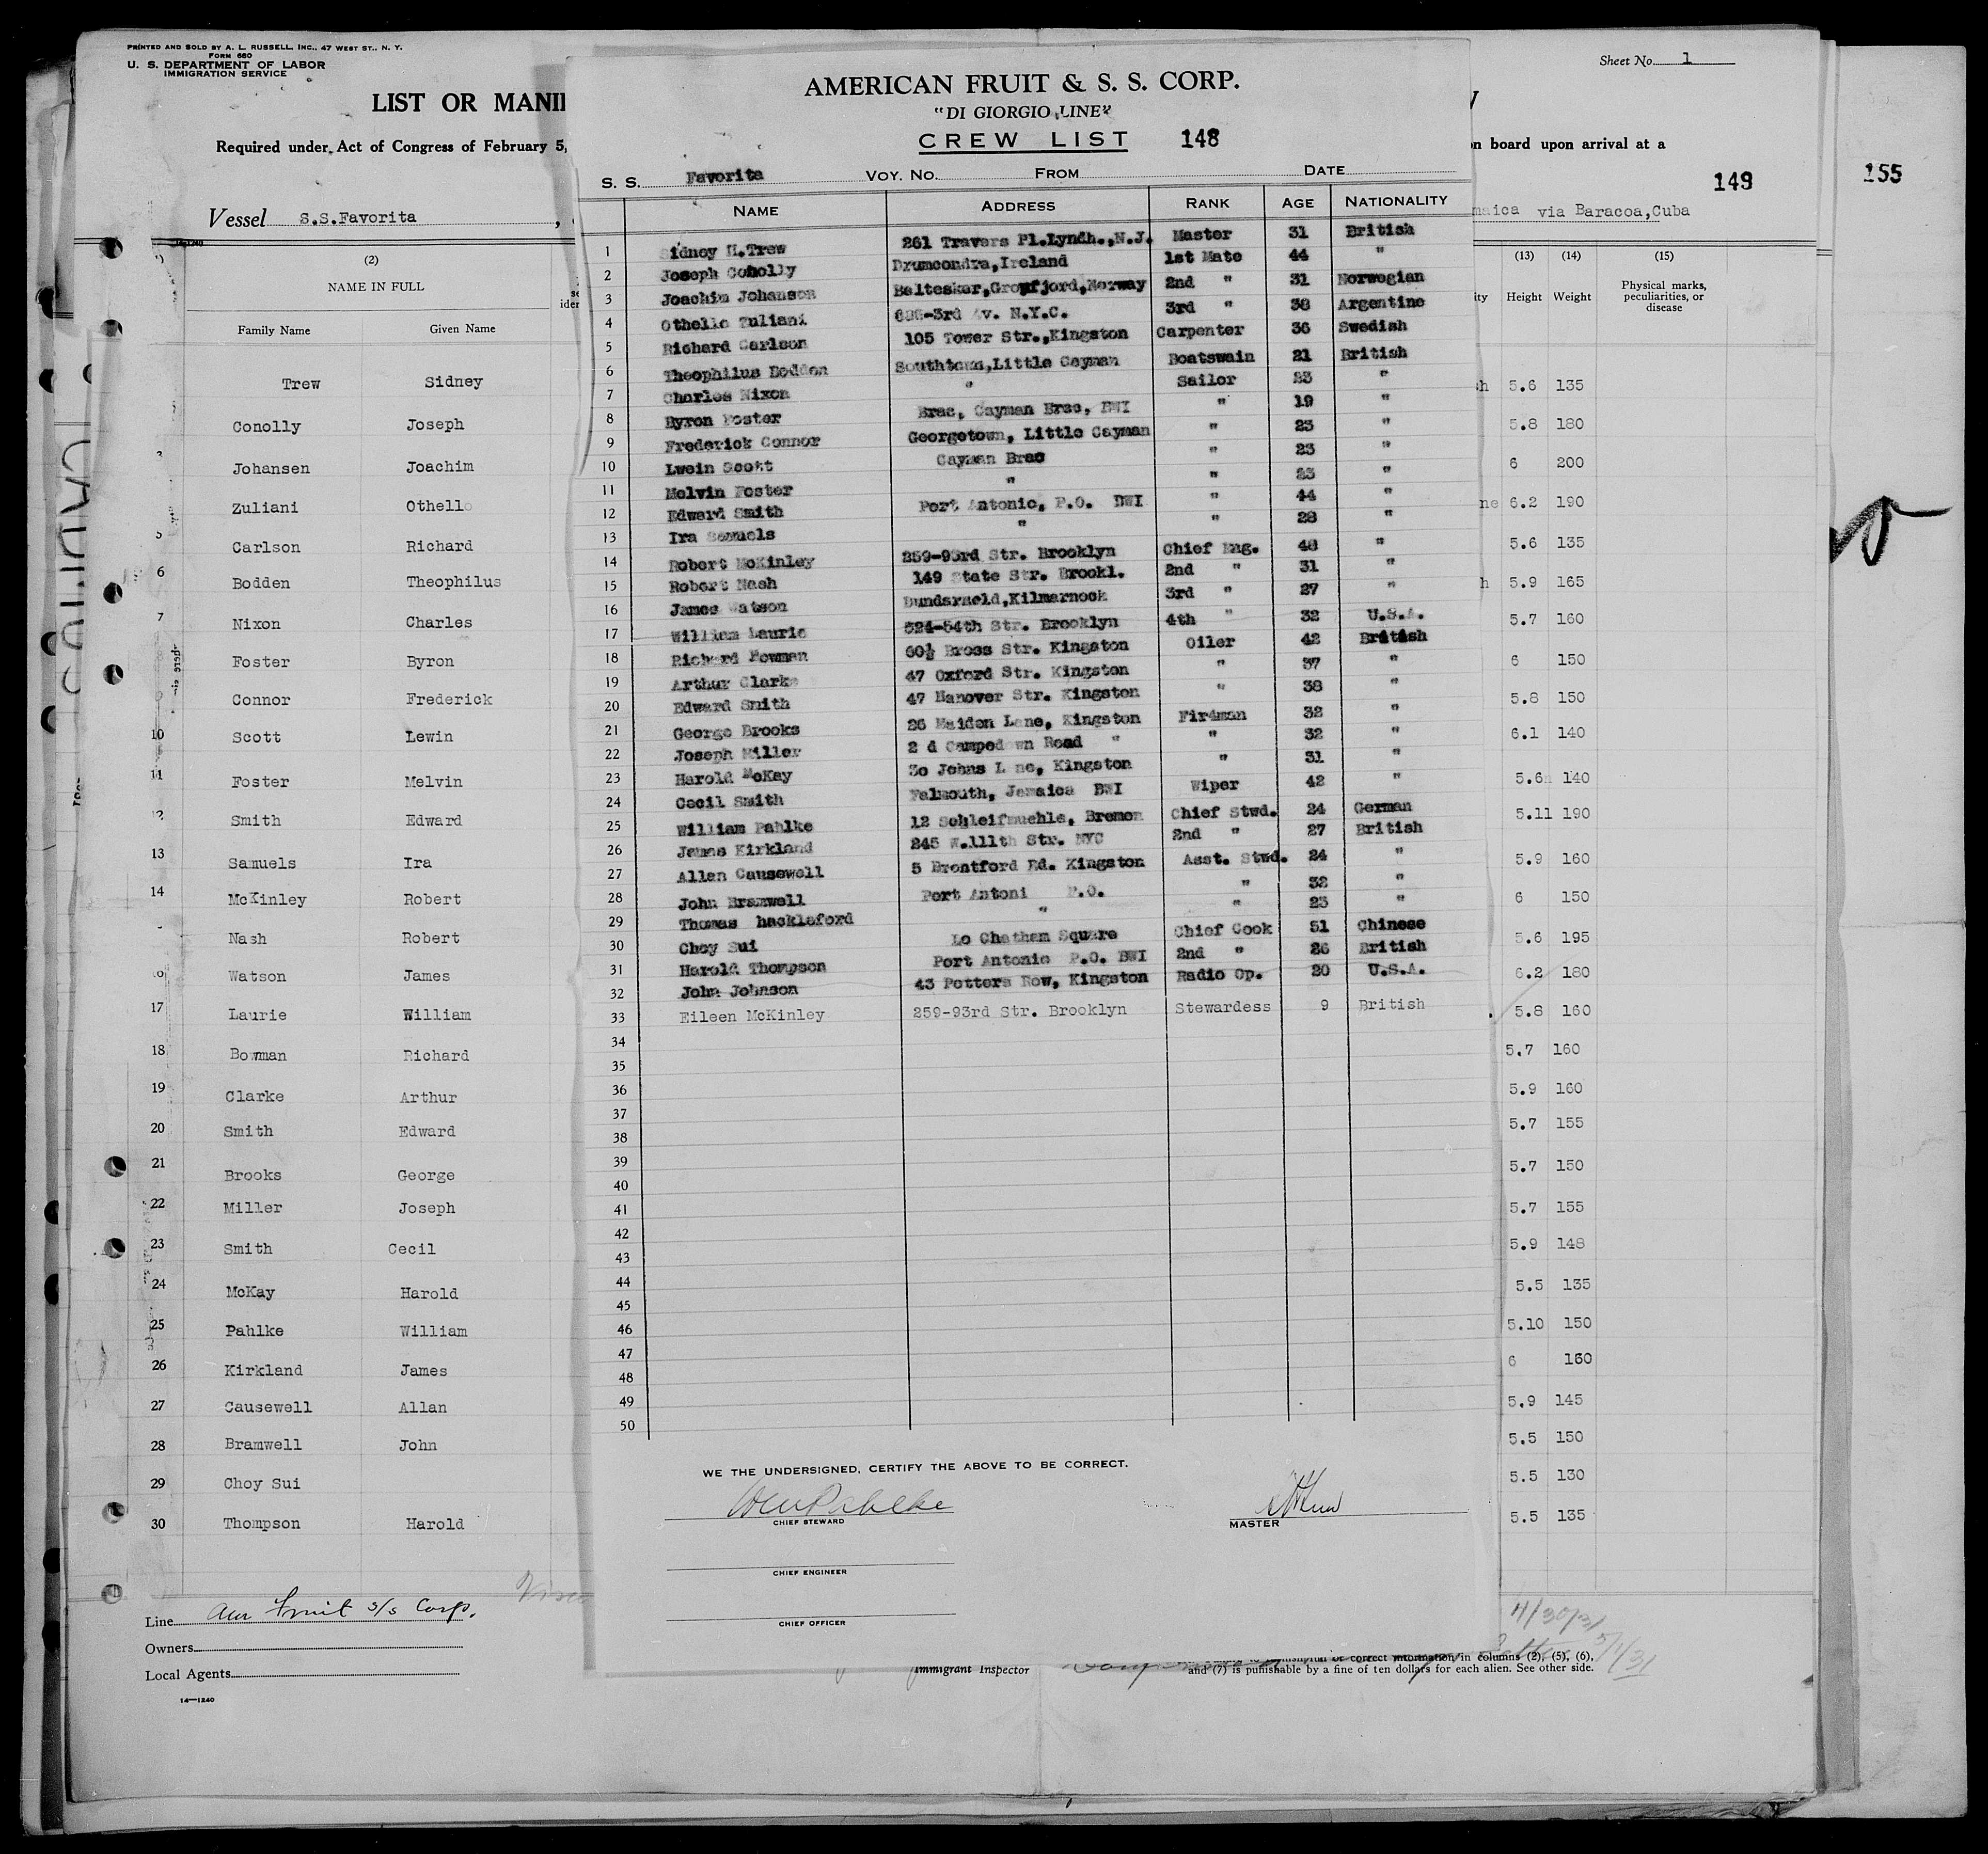 PRINTED AND SOLD BY A. L. RUSSELL, INC., 47 WEST ST., N. Y.
FORM 680
U. S. DEPARTMENT OF LABOR
IMMIGRATION SERVICE
LIST OR
Required under Act of Congress of February 5,
Vessel S.S.Favorita
(2)
NAME IN FULL
Family Name Given Name
Trew Sidney
Conolly Joseph
3 Johansen Joachim
Zuliani Othello
5 Carlson Richard
6 Bodden Theophilus
7 Nixon Charles
Foster Byron
Connor Frederick
10 Scott Lewin
11 Foster Melvin
12 Smith Edward
13 Samuels Ira
14 McKinley Robert
Nash Robert
Watson James
17 Laurie William
18 Bowman Richard
19 Clarke Arthur
20 Smith Edward
21 Brooks George
22 Miller Joseph
23 Smith Cecil
24 McKay Harold
25 Pahlke William
26 Kirkland James
27 Causewell Allan
28 Bramwell John
29 Choy Sui
30 Thompson Harold
Line Am Fruit S/S Corp.
Owners
Local Agents
14—1240
AMERICAN FRUIT & S. S. CORP.
"DI GIORGIO LINE"
CREW LIST 148
S. S. Favorita VOY. NO. FROM DATE
NAME ADDRESS RANK AGE NATIONALITY
1 Sidney H.Trew 261 Travers Pl.Lyndh.,N.J. Master 31 British
2 Joseph Conolly Drumcondra,Ireland 1st Mate 44 "
3 Joachim Johanson Norway 2nd " 31 Norwegian
4 Othello Zuliani 3rd Av. N.Y.C. 3rd " 38 Argentine
5 Richard Carlson 105 Tower Str.,Kingston Carpenter 36 Swedish
6 Theophilus Bodden Southtown,Little Cayman Boatswain 21 British
7 Charles Nixon " Sailor 23 "
8 Byron Foster Brac, Cayman Brac, BWI " 19 "
9 Frederick Connor Georgetown, Little Cayman " 23 "
10 Lwein Scott Cayman Brac " 23 "
11 Melvin Foster " " 23 "
12 Edward Smith Port Antonio, P.O. BWI " 44 "
13 Ira Samuels " " 28 "
14 Robert McKinley 259-93rd Str. Brooklyn Chief Eng. 48 "
15 Robert Nash 149 State Str. Brookl. 2nd " 31 "
16 James Watson Kilmarnock 3rd " 27 "
17 William Laurie 324-54th Str. Brooklyn 4th " 32 U.S.A.
18 Richard Bowman 60½ Bross Str. Kingston Oiler 42 British
19 Arthur Clarke 47 Oxford Str. Kingston " 37 "
20 Edward Smith 47 Hanover Str. Kingston " 38 "
21 George Brooks 26 Maiden Lane, Kingston Fireman 32 "
22 Joseph Miller 2 d Campedown Road " " 32 "
23 Harold McKay 3o Johns Lane, Kingston " 31 "
24 Cecil Smith Falmouth, Jamaica BWI Wiper 42 "
25 William Pahlke 12 Schleifmuehle, Bremen Chief Stwd. 24 German
26 James Kirkland 245 W.111th Str. NYC 2nd " 27 British
27 Allan Causewell 5 Brentford Rd. Kingston Asst. Stwd. 24 "
28 John Bramwell Port Antoni P.O. " 32 "
29 Thomas hackleford " " 23 "
30 Choy Sui Lo Chatham Square Chief Cook 51 Chinese
31 Harold Thompson Port Antonio P.O. BWI 2nd " 26 British
32 John Johnson 43 Potters Row, Kingston Radio Op. 20 U.S.A.
33 Eileen McKinley 259-93rd Str. Brooklyn Stewardess 9 British
34
35
36
37
38
39
40
41
42
43
44
45
46
47
48
49
50
WE THE UNDERSIGNED, CERTIFY THE ABOVE TO BE CORRECT.
Wm Pahlke
CHIEF STEWARD
MASTER
CHIEF ENGINEER
CHIEF OFFICER
Immigrant Inspector
Sheet No. 1
on board upon arrival at a
149
155
via Baracoa,Cuba
(13) (14) (15)
Height Weight Physical marks, peculiarities, or disease
5.6 135
5.8 180
6 200
6.2 190
5.6 135
5.9 165
5.7 160
6 150
5.8 150
6.1 140
5.6 140
5.11 190
5.9 160
6 150
5.6 195
6.2 180
5.8 160
5.7 160
5.9 160
5.7 155
5.7 150
5.7 155
5.9 148
5.5 135
5.10 150
6 160
5.9 145
5.5 150
5.5 130
5.5 135
4/30/31
5/1/31
correct information in columns (2), (5), (6),
and (7) is punishable by a fine of ten dollars for each alien. See other side.